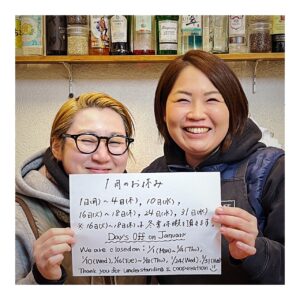 1月のお休み
1日(月)〜4日(木)、10日(水)、
16日(火)〜18日(木)、24日(水)、31日(水)
※16日(火)〜18日(木)は冬季休暇を頂きます。
Day's Off on January
We are closed on : 1/1(Mon)~1/4(Thu),
1/10(Wed), 1/16(Tue)~1/18(Thu), 1/24(Wed), 1/31(Wed)
Thank you for understanding & cooperation